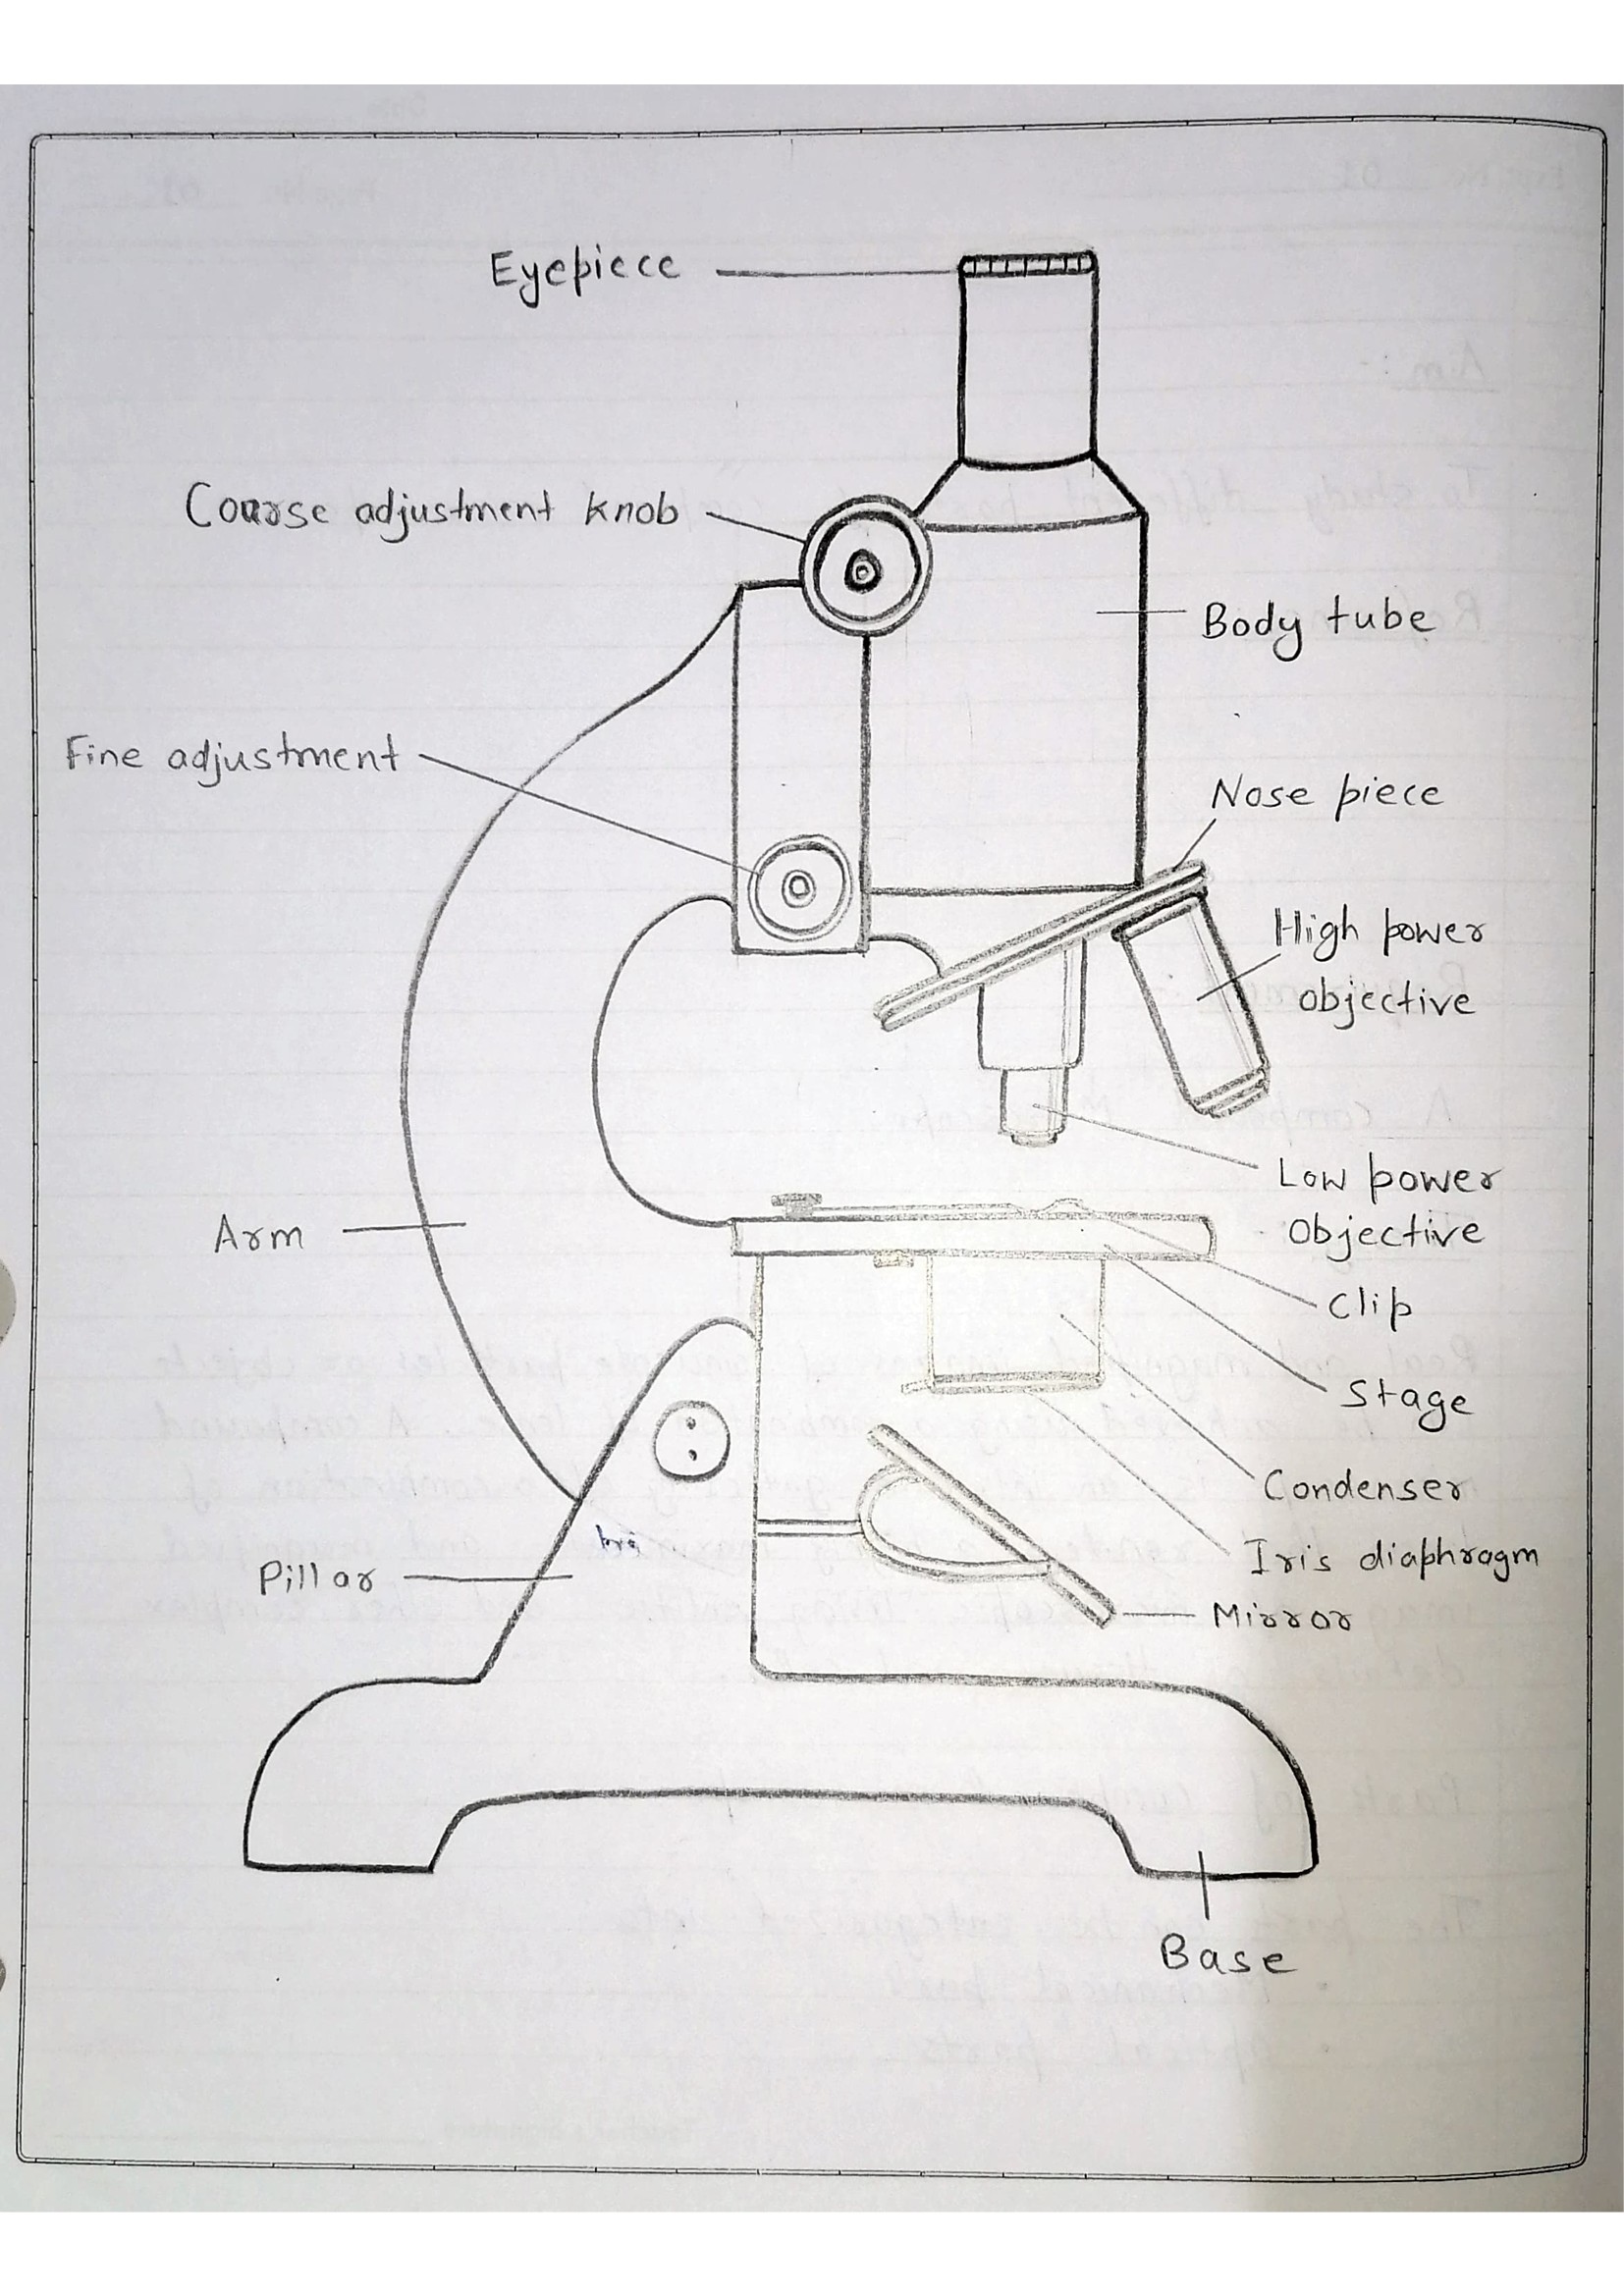 Eyepiece
Coarse adjustment knob
Body tube
Fine adjustment
Nose piece
High power
objective
Low power
Objective
Arm
Clip
Stage
Condenser
Iris diaphragm
Pillar
Mirror
Base